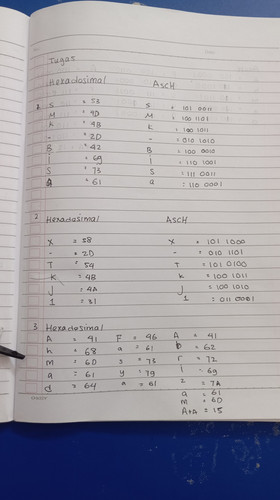 Tugas
Hexadosimal AscH
1. S = 53 S = 101 0011
M = 4D M = 100 1101
k = 4B k = 100 1011
- = 2D - = 010 1010
B = 42 B = 100 0010
i = 69 i = 110 1001
S = 73 S = 111 0011
a = 61 a = 110 0001
2. Hexadosimal AscH
X = 58 X = 101 1000
- = 2D - = 010 1101
T = 54 T = 101 0100
K = 4B k = 100 1011
J = 4A J = 100 1010
1 = 31 1 = 011 0001
3. Hexadosimal
A = 41 F = 46 A = 41
h = 68 a = 61 b = 62
m = 6D s = 73 r = 72
a = 61 y = 79 i = 69
d = 64 a = 61 z = 7A
a = 61
m = 6D
A+A = 15